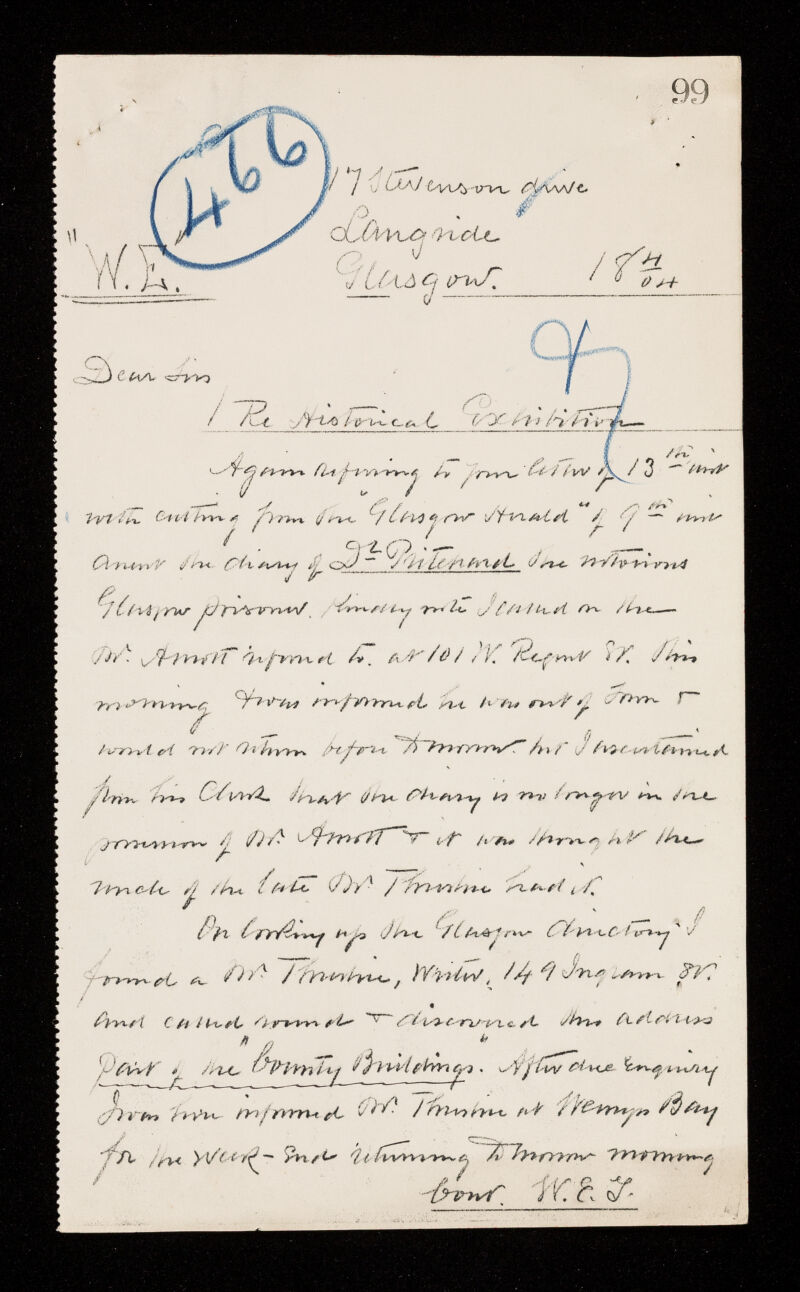 99
466
17 Stevenson drive
Langside
"W.E."
Glasgow. 18 4/04
Dear Sirs
Re Historical Exhibition
Again referring to your letter of 13th inst
with cutting from the "Glasgow Herald" of 9th inst
anent the diary of Dr Pritchard the notorious
Glasgow prisoner. Kindly note I called on the
Mr. Arnott refered to. at 101 W. Regent St. this
morning & was informed he was out of Town &
would not return before Tomorrow. but I ascertained
from his Clerk that the diary is no longer in the
possession of Mr. Arnott & it was thought the
uncle of the late Mr. had it.
On looking up the Glasgow directory I
found a Mr. Writer, 149 Ingram St.
and called round & discovered this address
Part of the "County Buildings." After due Enquiry
I was here informed Mr. at Wemyss Bay
for the Week-End returning Tomorrow morning
Cont. W.E.T.